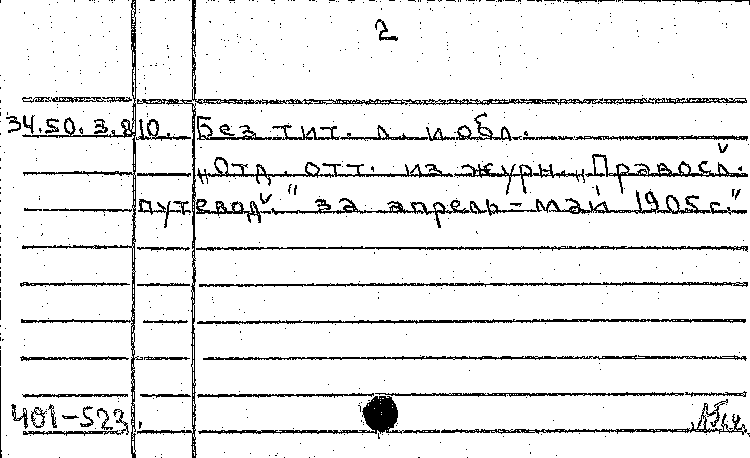 2
34.50.3.210. Без тит. л. и обл.
„Отд. отт. из журн. „Правосл.
путевод." за апрель-май 1905г."
401-523.